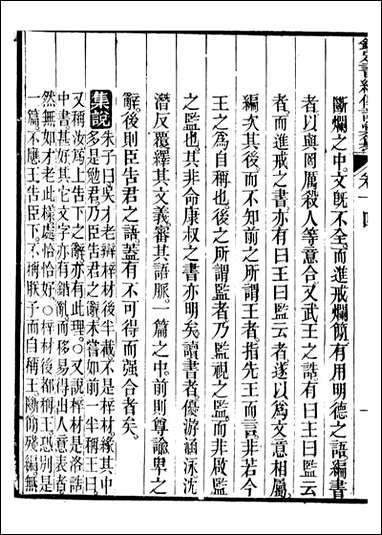 欽定書經傳說彙纂 卷十四
斷爛之中文旣不全而進戒爛簡有用明德之語編書
者以與罔厲殺人等意合又武王之誥有曰王曰監云
者而進戒之書亦有曰王曰監云者遂以爲文意相屬
編次其後而不知前之所謂王者指先王而言非若今
王之爲自稱也後之所謂監者乃監視之監而非啟監
之監也其非命康叔之書亦明矣讀書者優游涵泳沈
潛反覆繹其文義審其語脈一篇之中前則尊諭卑之
辭後則臣告君之語蓋有不可得而强合者矣
集說 朱子曰吳才老辯梓材後半截不是梓材緣其中
多是勉君乃臣告君之辭未嘗如前一半稱王曰
又稱汝爲上告下之辭亦有此理○又說梓材是洛誥
中書甚好其它文字亦有錯亂而移易得出人意表者
然無如才老此樣處恰恰好○梓材後都稱王恐別是
一篇不應王告臣下不稱朕子而自稱王斷簡殘編無